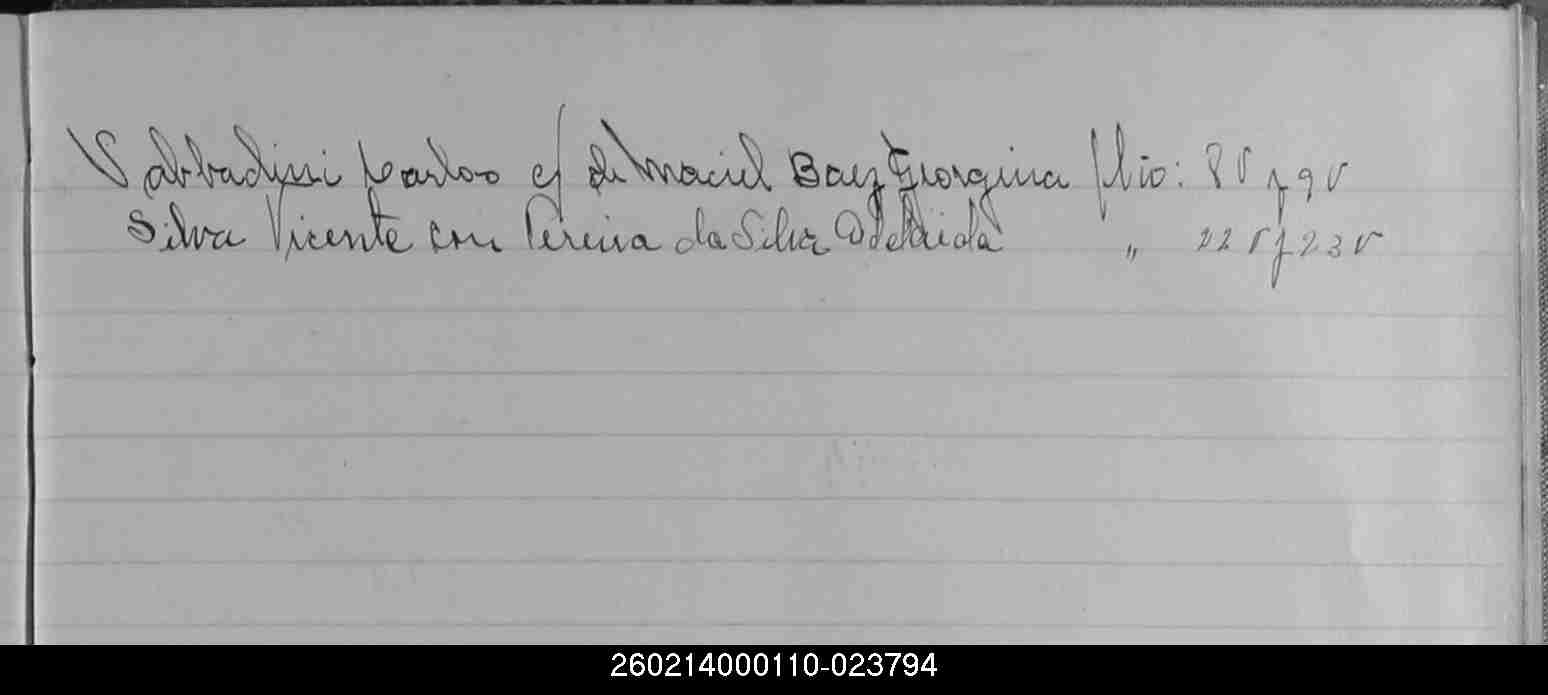 Sabbadini Carlos c/ de Maciel Baez Georgina flio: 8v y 9v
Silva Vicente con Pereira da Silva Adelaida " 22v y 23v
260214000110-023794